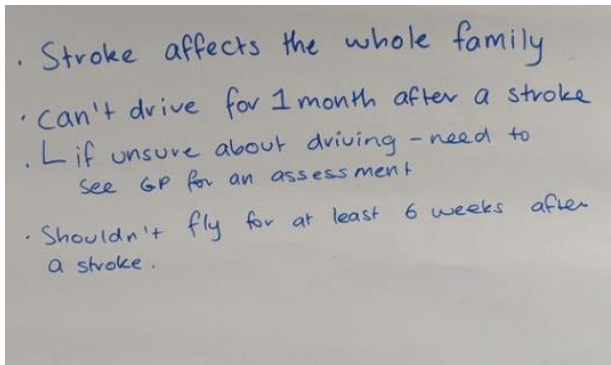 · Stroke affects the whole family
· can't drive for 1 month after a stroke
· L if unsure about driving - need to
see GP for an assessment
· Shouldn't fly for at least 6 weeks after
a stroke.